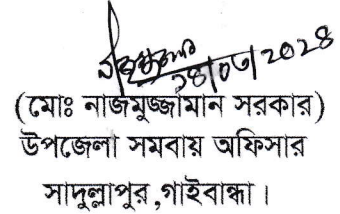 ২৪/০৩/২০২৪
(মোঃ নাজমুজ্জামান সরকার)
উপজেলা সমবায় অফিসার
সাদুল্লাপুর,গাইবান্ধা।